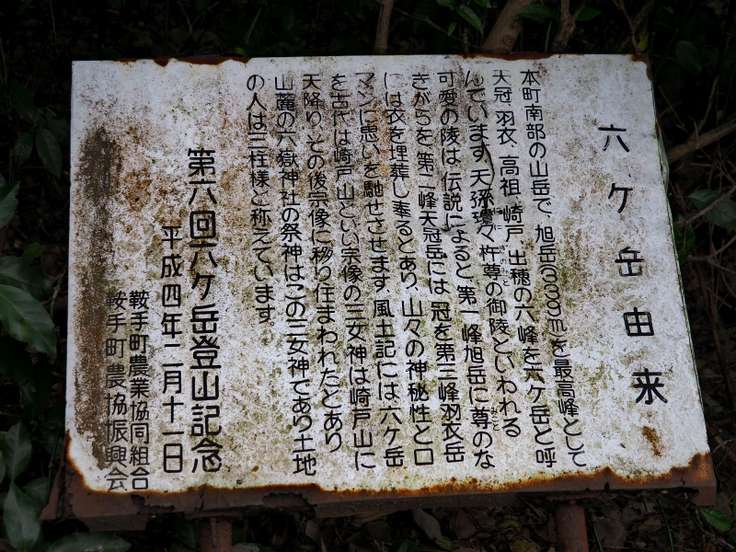 六ケ岳由来
本町南部の山岳で、旭岳を最高峰として
天冠、羽衣、高祖、崎戸、出穂の六峰を六ケ岳と呼
んでいます。天孫瓊々杵尊の御陵といわれる
可愛の陵は、伝説によると、第一峰旭岳に尊のな
きがらを、第二峰天冠岳には、冠を第三峰羽衣岳
には衣を埋葬し奉るとあり、山々の神秘性とロ
マンに思いを馳せさせます。風土記には六ケ岳
を古代は崎戸山といい宗像の三女神は崎戸山に
天降り、その後宗像に移り住まわれたとあり
山麓の六嶽神社の祭神はこの三女神であり土地
の人は三柱様と称えています。
第六回六ケ岳登山記念
平成四年二月十一日
鞍手町農業協同組合
鞍手町農協振興会